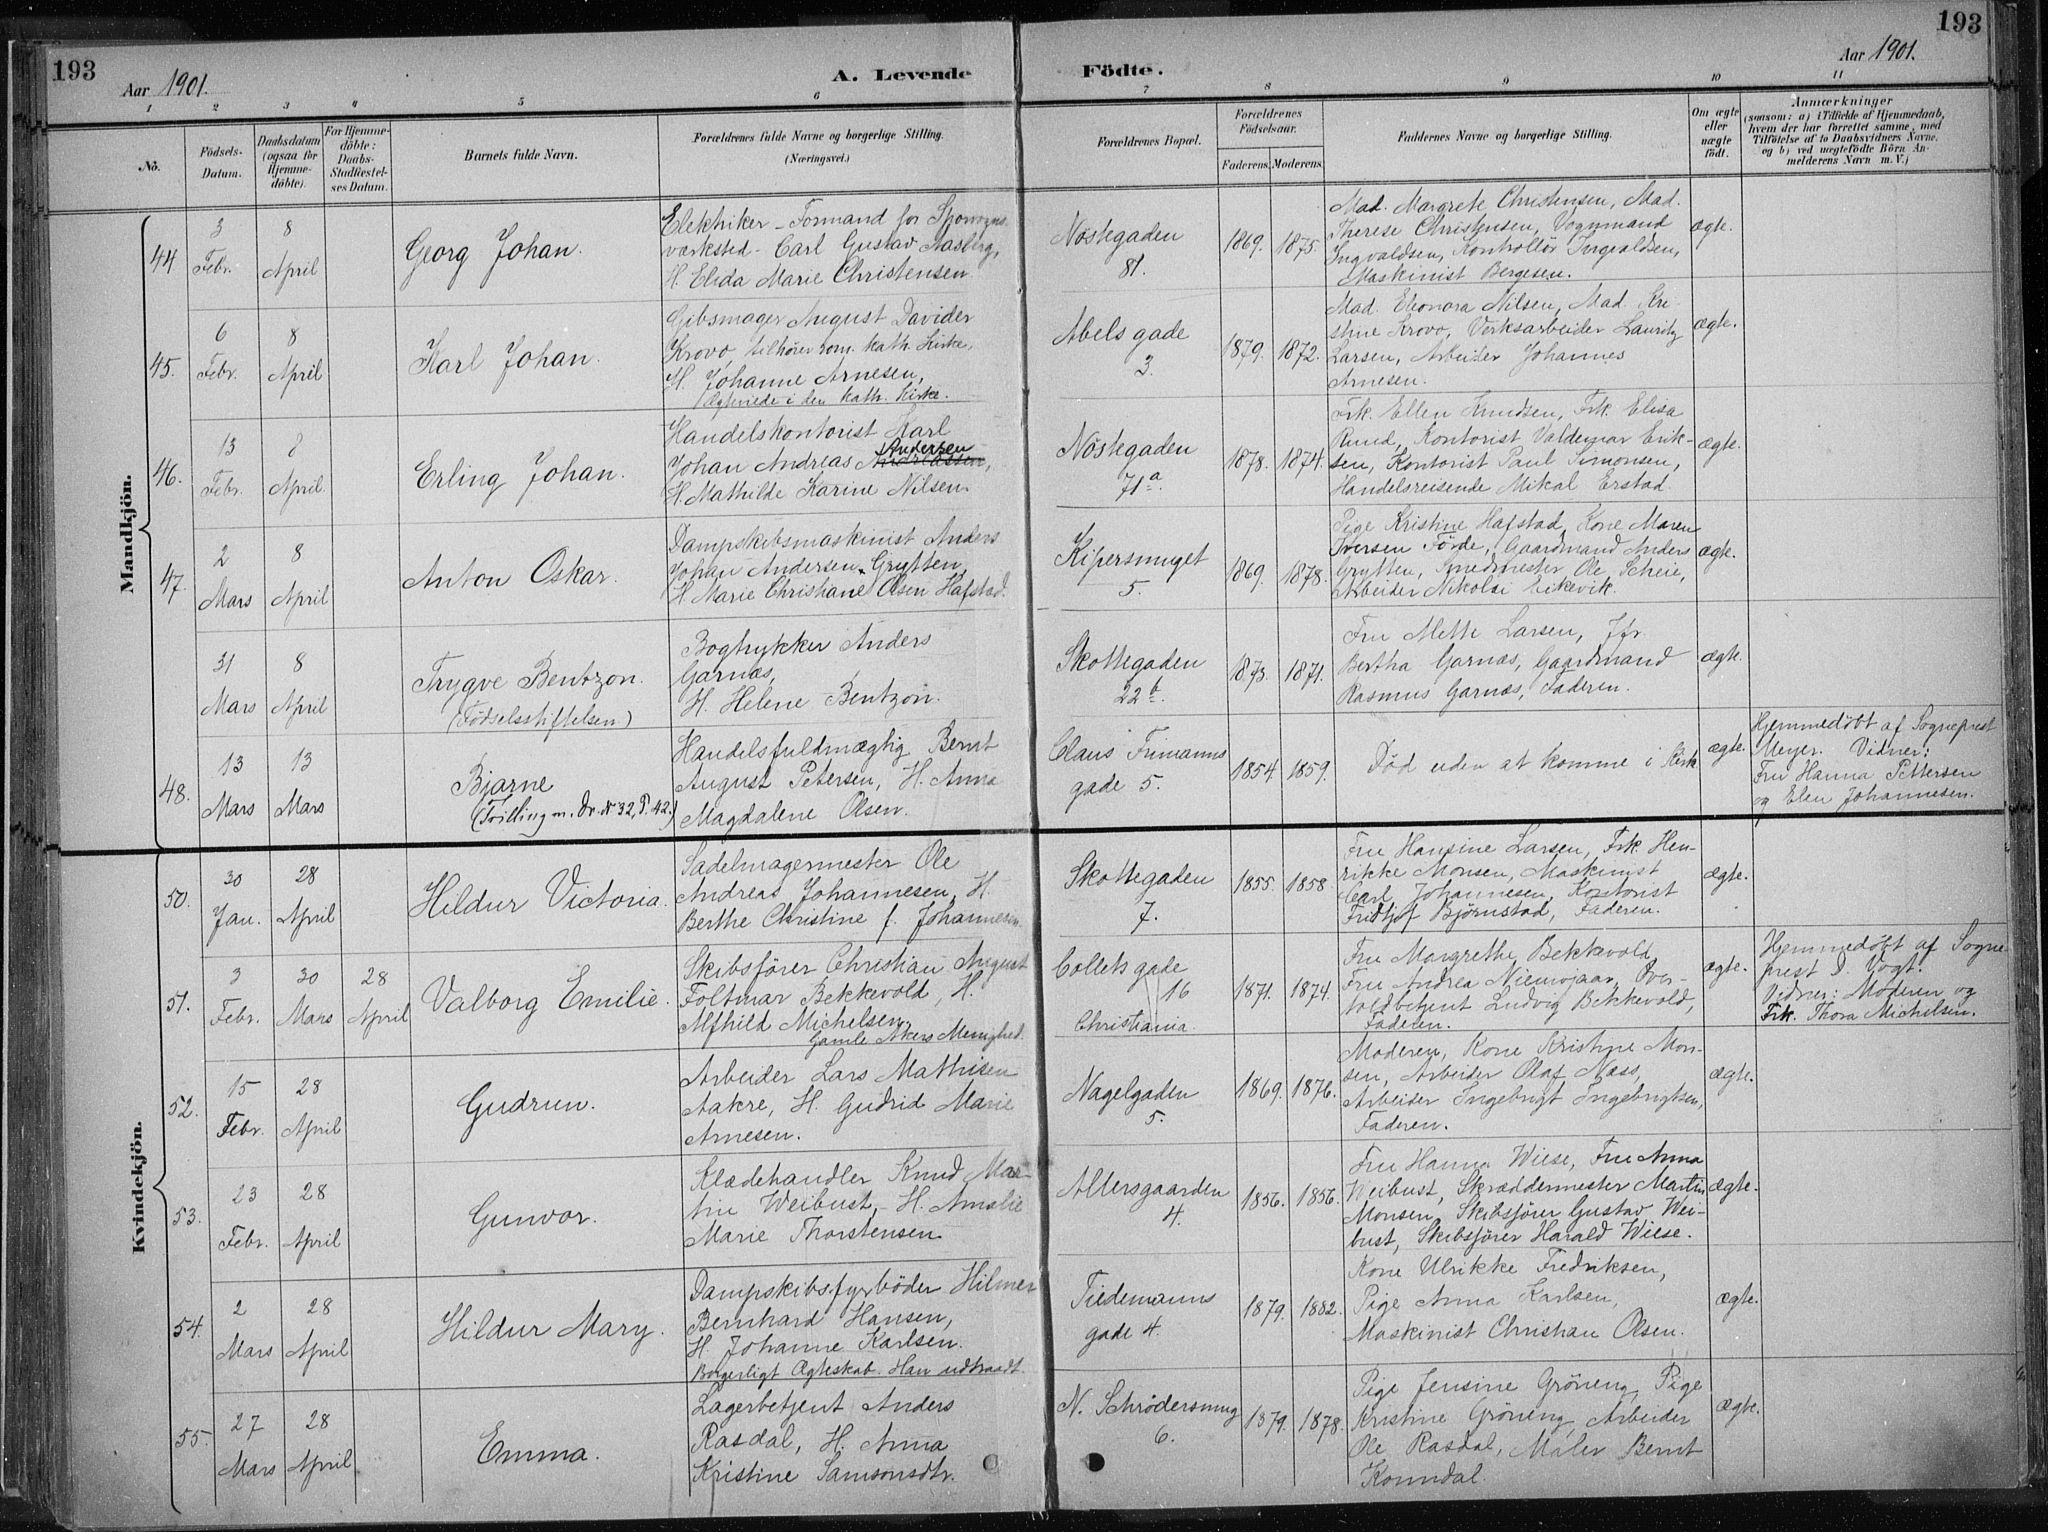 193
193
Aar 1901.
A. Levende
Födte.
Aar 1901.
1
2
3
4
5
6
7
8
9
10
11
No.
Födsels-
Datum.
Daabsdatum
(ogsaa for
Hjemme-
döbte).
For Hjemme-
döbte:
Daabs-
Stadfæstel-
ses Datum.
Barnets fulde Navn.
Forældrenes fulde Navne og borgerlige Stilling.
(Næringsvei.)
Forældrenes Bopæl.
Forældrenes
Födselsaar.
Faderens.
Moderens.
Faddernes Navne og borgerlige Stilling.
Om ægte
eller
uægte
födt.
Anmærkninger
(saasom: a) i Tilfælde af Hjemmedaab,
hvem der har forrettet samme, med
Tilföielse af to Daabsvidners Navne.
og b) ved uægtefödte Börn An-
melderens Navn m. V.)
Mandkjön.
44
3
Febr.
8
April
Georg Johan.
Elektriker - Formand for Sporvogns-
værksted - Carl Gustav Aasberg,
H. Elida Marie Christensen
Nöstegaden
81.
1869.
1875.
Mad. Margrete Christensen, Mad.
Therese Christensen, Vognmand
Ingvaldsen, Kontrollör Ingvaldsen,
Maskinist Bergesen.
ægte.
45.
6
Febr.
8
April
Karl Johan.
Gibsmager August Davider
Krovo, tilhører rom. kath. Kirke,
H. Johanne Arnesen,
Ægteviede i den kath. Kirke.
Abels gade
3.
1879.
1872.
Mad. Elenora Nilsen, Mad. Kri-
stine Krovo, Verksarbeider Lauritz
Larsen, Arbeider Johannes
Arnesen.
ægte.
46.
13
Febr.
8
April
Erling Johan.
Handelskontorist Karl
Andersen
Johan Andreas Andreassen,
H. Mathilde Karine Nilsen
Nöstegaden
71a.
1878.
1874.
Frk. Ellen Knudsen, Frk. Elisa
Rund, Kontorist Valdemar Erik-
sen, Kontorist Paul Simonsen,
Handelsreisende Mikal Erstad.
ægte.
47.
2
Mars
8
April
Anton Oskar.
Dampskibsmaskinist Anders
Johan Andersen Grytten,
H. Marie Christiane Olsen Hafstad.
Kipersmuget
5.
1869.
1878.
Pige Kristine Hafstad, Kone Maren
Iversen Förde, Gaardmand Anders
Grytten, Smedmester Ole Scheie,
Arbeider Nikolai Eikevik.
ægte.
31
Mars
8
April
Trygve Bentzon.
(Fødselsstiftelsen)
Bogtrykker Anders
Garnæs,
H. Helene Bentzon.
Skottegaden
22b.
1873.
1871.
Fru Mette Larsen, Jfr.
Bertha Garnæs, Gaardmand
Rasmus Garnæs, Faderen.
ægte.
48.
13
Mars
13
Mars
Bjarne
(Tvilling m. Dr. N 32, P. 42.)
Handelsfuldmægtig Bernt
August Petersen, H. Anna
Magdalene Olsen.
Claus Frimanns
gade 5.
1854.
1859.
Død uden at komme i Kirk
ægte.
Hjemmedøbt af Sogneprest
Meyer. Vidner:
Fru Hanna Pettersen
og Elen Johannesen.
Kvindekjön.
50.
30
Jan.
28
April
Hildur Victoria.
Sadelmagermester Ole
Andreas Johannesen, H.
Berthe Christine f. Johannesen
Skottegaden
7.
1855.
1858.
Fru Hansine Larsen, Frk. Hen-
rikke Monsen, Maskinist
Carl Johannesen, Kontorist
Fridtjof Bjørnstad, Faderen.
ægte.
51.
3
Febr.
30
Mars
28
April
Valborg Emilie.
Skibsfører Christian August
Foltmar Bekkevold, H.
Alfhild Michelsen,
Gamle Akers Menighed.
Collets gade
16
Christiania.
1871.
1874.
Fru Margrethe Bekkevold,
Fru Andrea Niemojaar, Över-
toldbetjent Ludvig Bekkevold,
Faderen.
ægte.
Hjemmedøbt af Sogne-
prest D. Vogt.
Vidner: Moderen og
Frk. Thora Michelsen.
52.
15
Febr.
28
April
Gudrun.
Arbeider Lars Mathisen
Aakre, H. Gudrid Marie
Arnesen.
Nagelgaden
5.
1869.
1876.
Moderen, Kone Kristine Mon-
sen, Arbeider Olaf Næss,
Arbeider Ingebrigt Ingebrigtsen,
Faderen.
ægte.
53.
23
Febr.
28
April
Gunvor.
Klædehandler Knud Mar-
tin Weibust, H. Amalie
Marie Thorstensen
Allersgaarden
4.
1856.
1856.
Fru Hanna Wiese, Fru Anna
Weibust, Skræddermester Martin
Monsen, Skibsfører Gustav Wei-
bust, Skibsfører Harald Wiese.
ægte.
54.
2
Mars
28
April
Hildur Mary.
Dampskibsfyrbøder Hilmer
Bernhard Hansen,
H. Johanne Karlsen.
Borgerligt Ægteskab. Han udtraadt.
Tiedemanns
gade 4.
1879.
1882.
Kone Ulrikke Fredriksen,
Pige Anna Karlsen,
Maskinist Christian Olsen.
ægte.
55.
27
Mars
28
April
Emma.
Lagerbetjent Anders
Rasdal, H. Anna
Kristine Samsonsdtr.
N. Schrødersmug
6.
1879.
1878.
Pige Jensine Gröneng, Pige
Kristine Gröneng, Arbeider
Ole Rasdal, Maler Bernt
Konndal.
ægte.